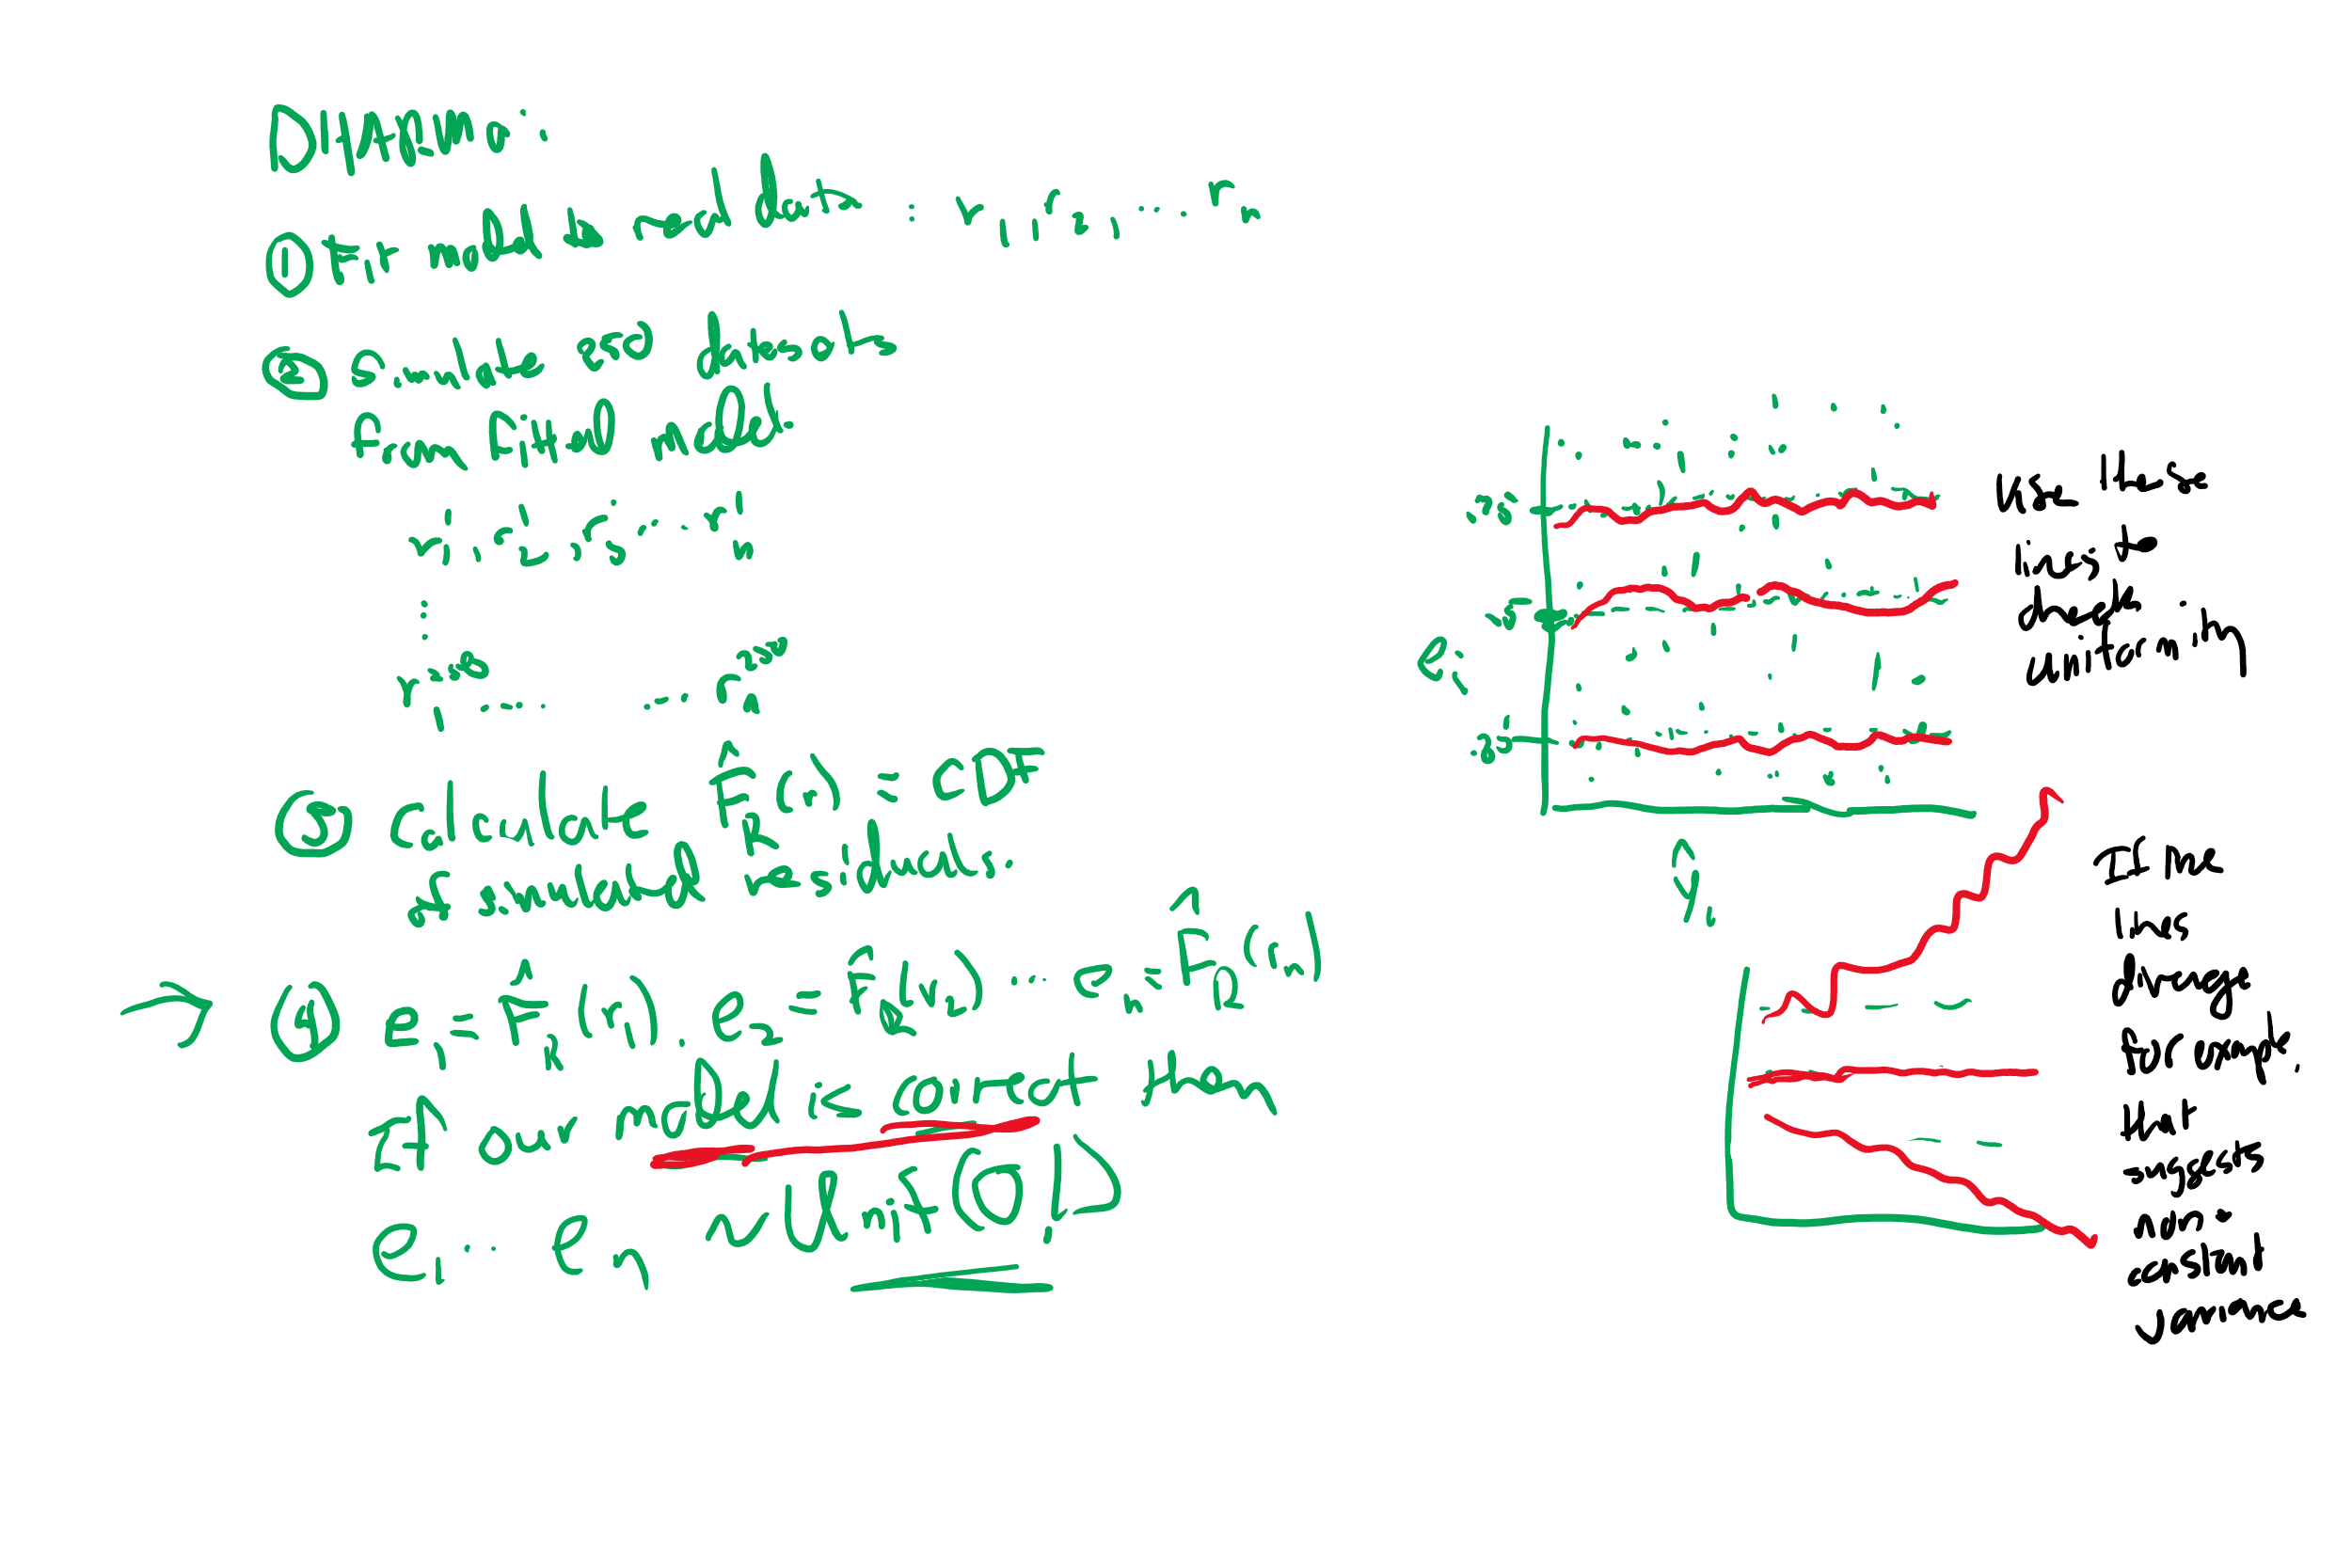 DHARMa:
① Fit model to real data : r₁, r₂, ... rₙ
② Simulate 250 datasets
from fitted model.
r₁', r₂', r₃' ... rₙ'
⋮
r₁²⁵⁰ ... ... rₙ²⁵⁰
③ Calculate F̂ᵣ(r) = CDF
of simulated residuals.
→ ④ e₁ = F̂ᵣ(r₁), e₂ = F̂ᵣ(r₂) ... eₙ = F̂ᵣ(rₙ)
If our model is correct then
e₁ ... eₙ ~ Unif(0,1)
.75
.5
.25
eᵢ
ŷᵢ
Use these
lines to
check
uniformity
If the
lines
diverge
for example,
that
suggests
non-
constant
variance